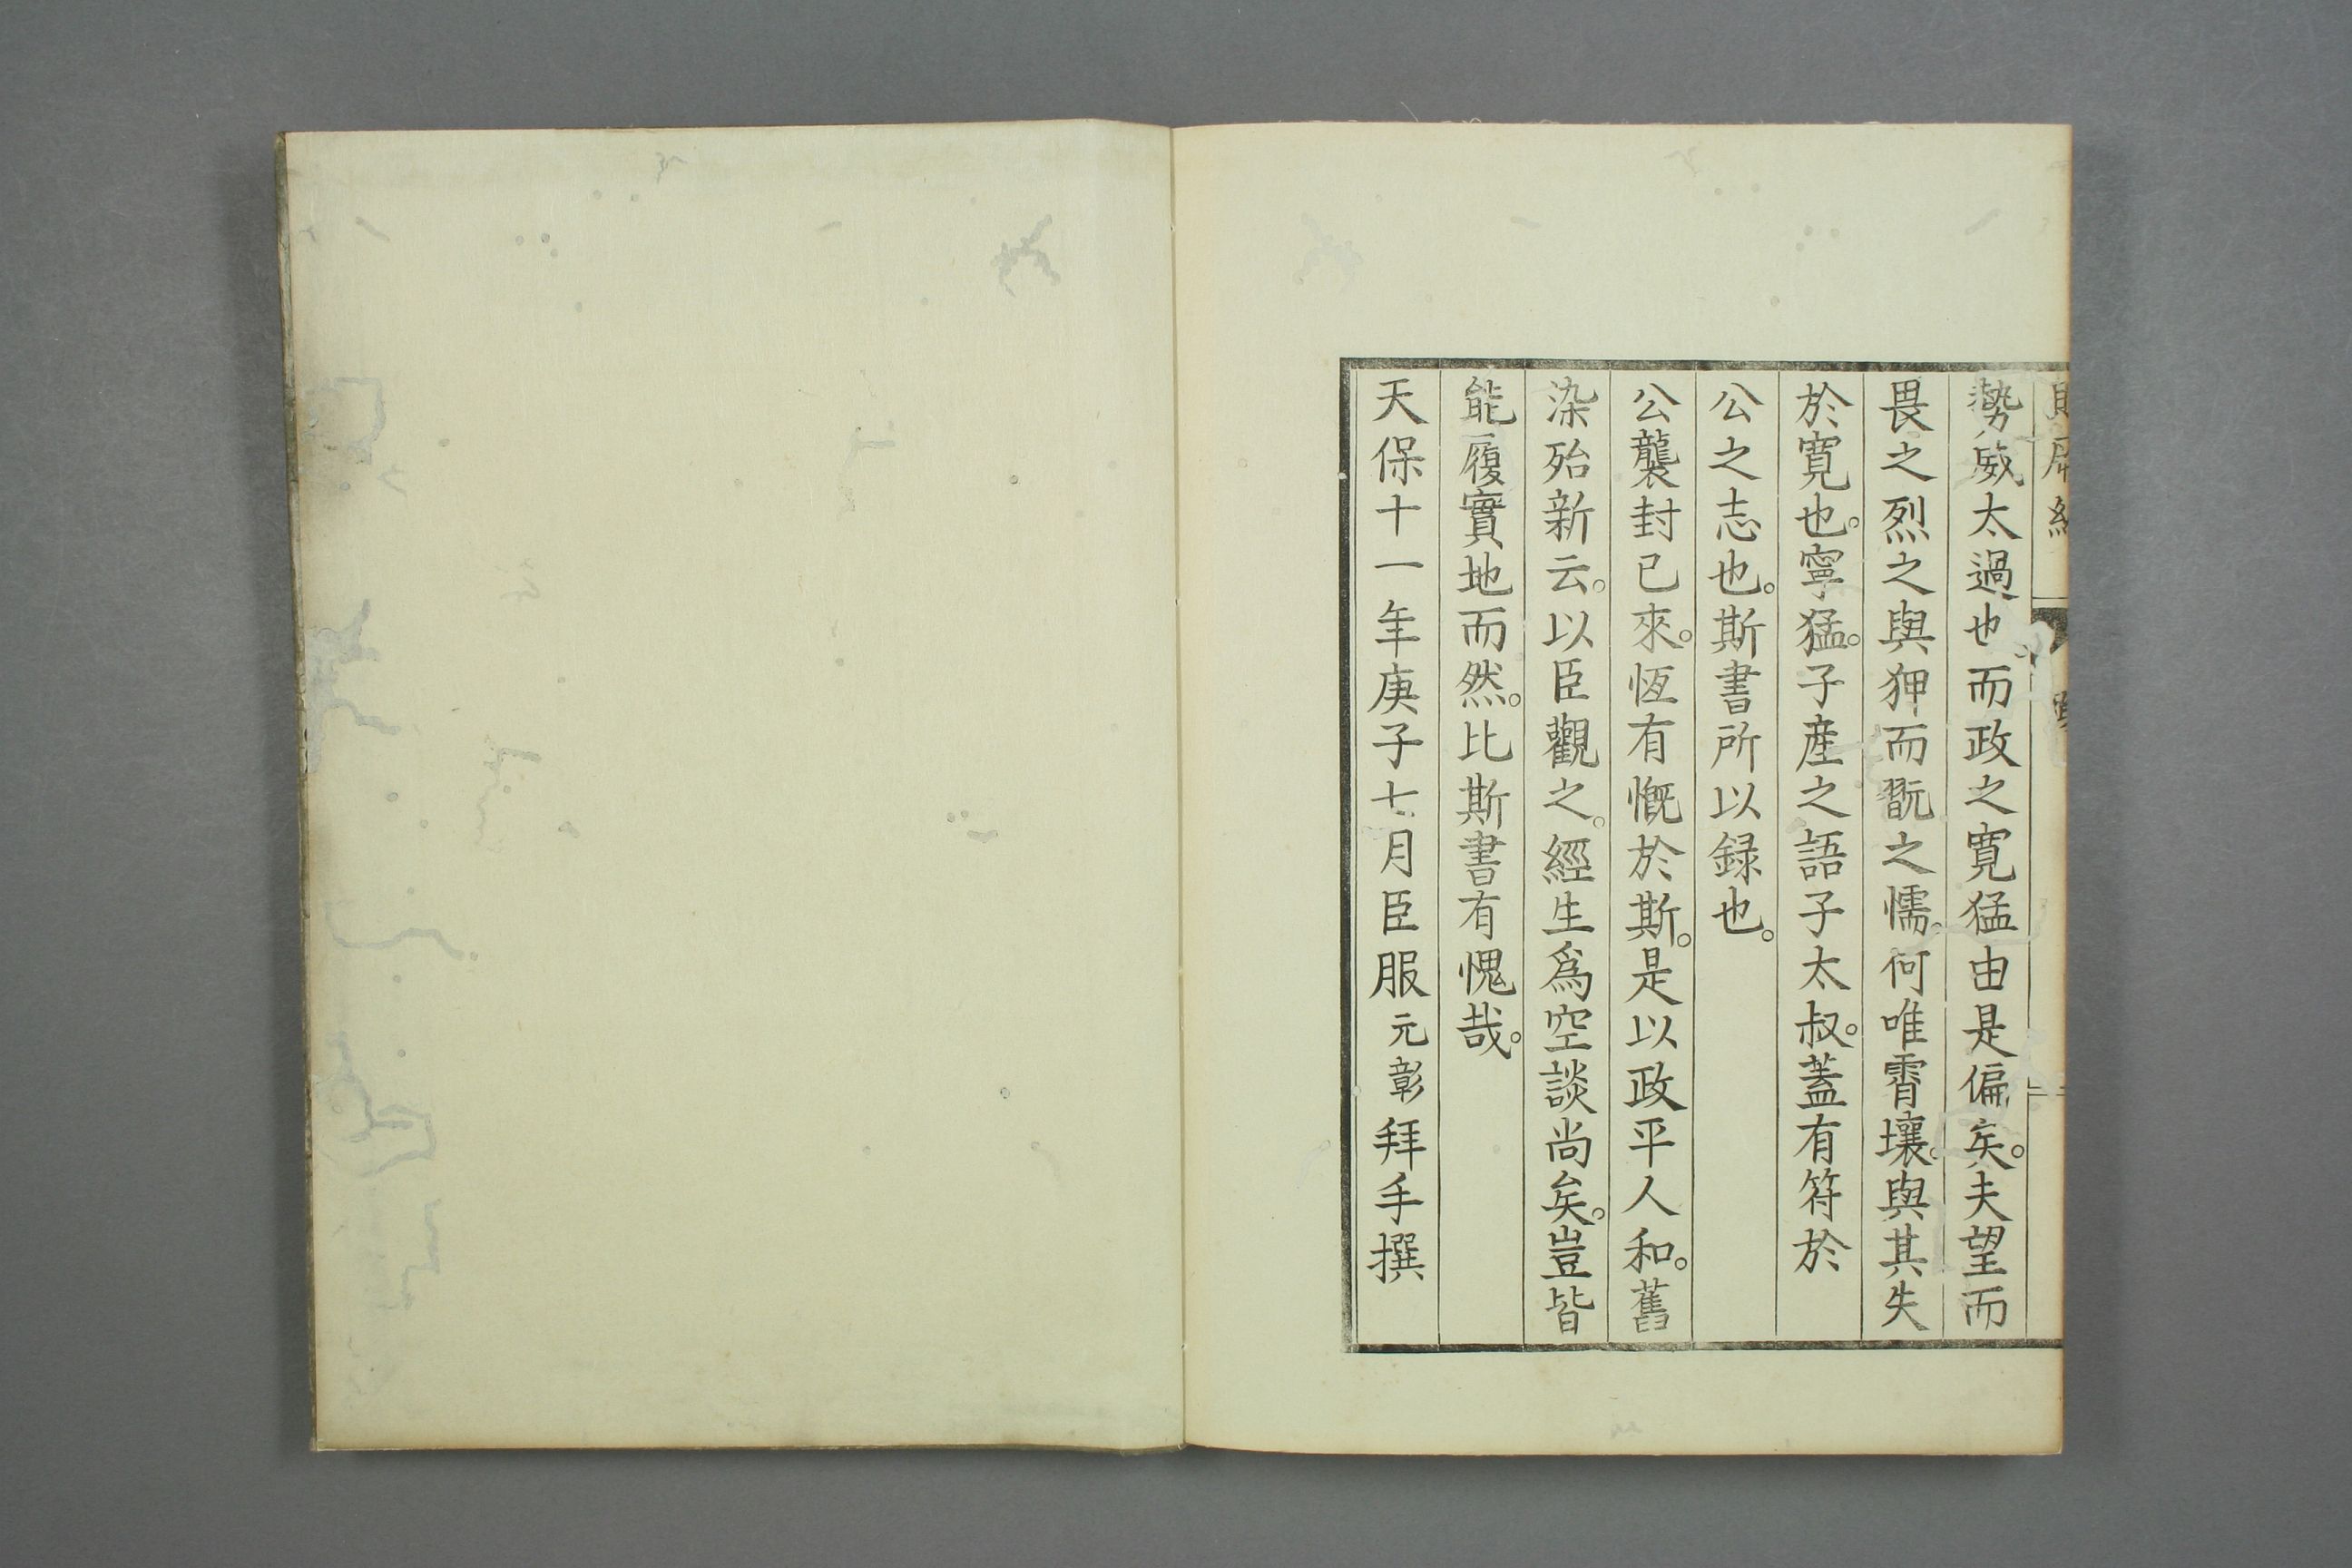 勢威太過也而政之寛猛由是偏矣。夫望而
畏之烈之與狎而翫之懦。何唯霄壤。與其失
於寛也。寧猛。子産之語子太叔。蓋有符於
公之志也。斯書所以録也。
公襲封已來。恆有慨於斯。是以政平人和。舊
染殆新云。以臣觀之。經生爲空談尚矣。豈皆
能履實地而然。比斯書有愧哉。
天保十一年庚子七月臣服元彰拜手撰